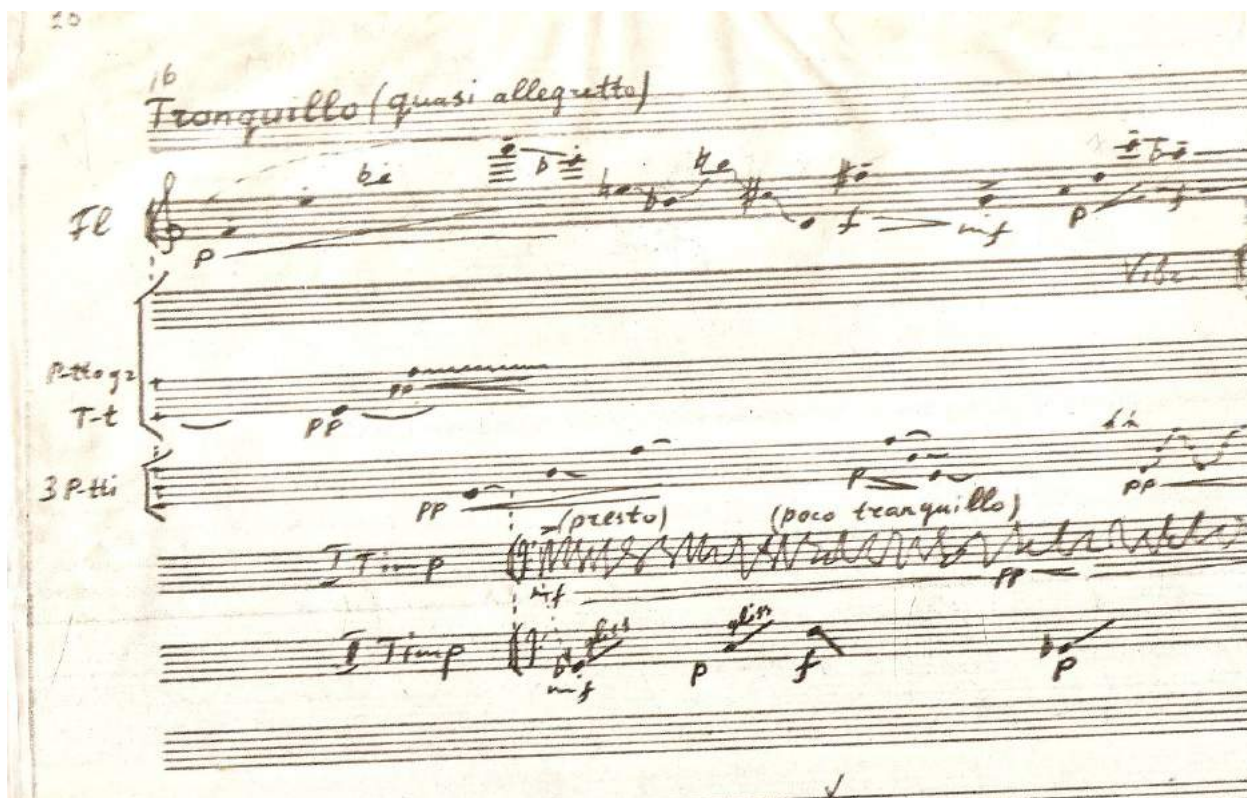 16
Tranquillo (quasi allegretto)
Fl
p f mf p f
Vibr.
T-t
pp pp
3 P-tti
pp p pp
(presto) (poco tranquillo)
I Timp
mf pp
gliss gliss
II Timp
mf p f p